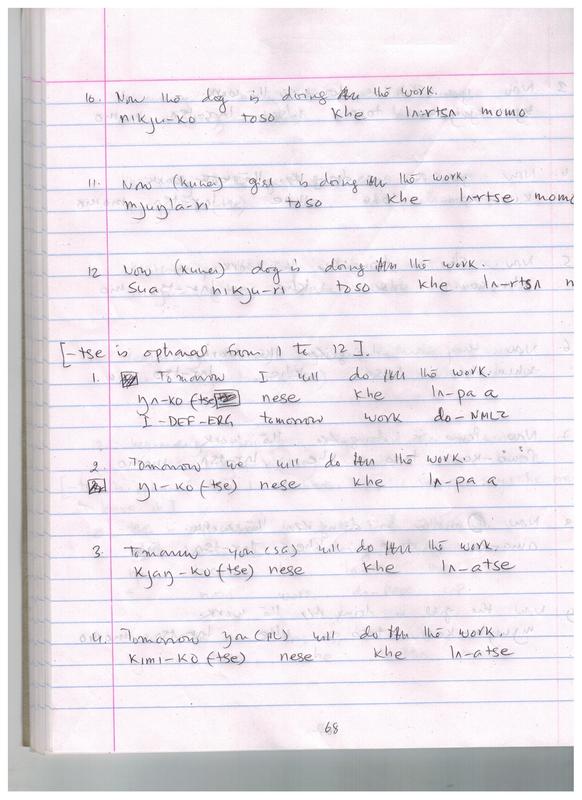 10. Now the dog is doing the work.
nikju-ko toso khe lʌ-rtsʌ momo
11. Now (Kunei) girl is doing the work.
mjuŋla-ri toso khe lʌ-rtse momo
12 Now (Kunei) dog is doing the work.
sua nikju-ri toso khe lʌ-rtsʌ m
[-tse is optional from 1 to 12].
1. Tomorrow I will do the work.
ŋʌ-ko (-tse) nese khe lʌ-pa a
I-DEF-ERG tomorrow work do-NMLZ
2. Tomorrow we will do the work.
ŋi-ko (-tse) nese khe lʌ-pa a
3. Tomorrow you (SG) will do the work.
kjaŋ-ko (-tse) nese khe lʌ-atse
4. Tomorrow you (PL) will do the work.
kimi-ko (-tse) nese khe lʌ-atse
68